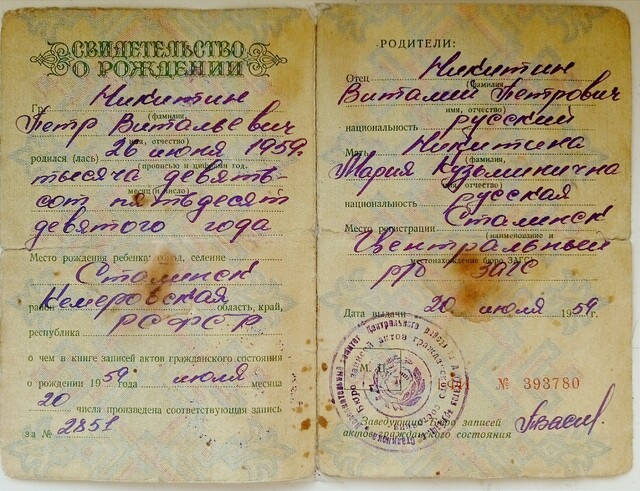 СВИДЕТЕЛЬСТВО
О РОЖДЕНИИ
Гр. Никитин
(фамилия,
Петр Витальевич
имя, отчество)
родился (лась) 26 июня 1959г.
(прописью и цифрами год,
тысяча девять-
месяц и число)
сот пятьдесят
девятого года
Место рождения ребенка: город, селение
Сталинск
район Кемеровская область, край,
республика РСФСР
о чем в книге записей актов гражданского состояния
о рождении 1959 июля месяца
20 числа произведена соответствующая запись
за № 2851
РОДИТЕЛИ:
Отец Никитин
(фамилия,
Виталий Петрович
имя, отчество)
национальность русский
Мать Никитина
(фамилия,
Мария Кузьминична
имя, отчество)
национальность русская
Место регистрации Сталинск
(наименование и
Центральный
местонахождение бюро ЗАГС)
р/б ЗАГС
Дата выдачи 20 июля 1959г.
М. П.
№ 393780
Заведующий Бюро записей
актов гражданского состояния